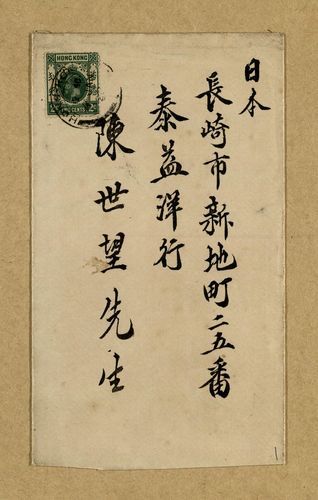 日本
長崎市新地町二五番
泰益洋行
陳世望先生
HONG KONG
CENTS